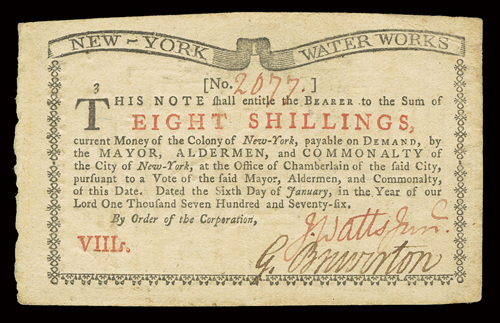 NEW-YORK WATER WORKS
[No. 2077.]
3
THIS NOTE shall entitle the BEARER to the Sum of
EIGHT SHILLINGS,
current Money of the Colony of New-York, payable on DEMAND, by
the MAYOR, ALDERMEN, and COMMONALTY of
the City of New-York, at the Office of Chamberlain of the said City,
pursuant to a Vote of the said Mayor, Aldermen, and Commonalty,
of this Date. Dated the Sixth Day of January, in the Year of our
Lord One Thousand Seven Hundred and Seventy-six.
By Order of the Corporation,
J. Watts Junr.
VIIIs.
G. Brewerton